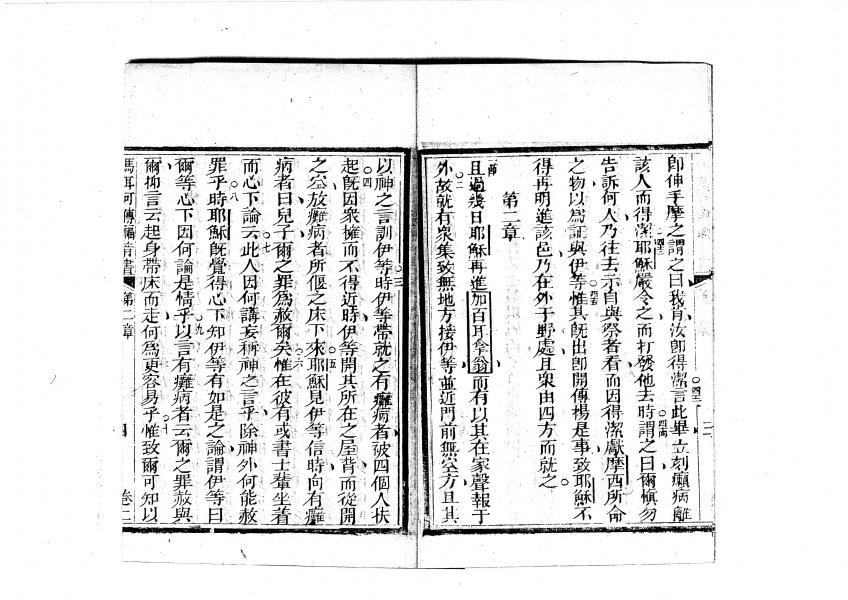 即伸手摩之謂之曰我肯汝即得潔言此畢立刻癩病離
該人而得潔耶穌嚴令之而打發他去時謂之曰爾慎勿
告訴何人乃往去示自與祭者看而因得潔獻摩西所命
之物以為証與伊等惟其既出即開傳揚是事致耶穌不
得再明進該邑乃在外于野處且眾由四方而就之
第二章
且過幾日耶穌再進加百耳拿翁而有以其在家聲報于
外故就有眾集致無地方接伊等並近門前無空方且其
以神之言訓伊等時伊等帶就之有癱病者被四個人扶
起既因衆擁而不得近時伊等開其所在之屋背而從開
之空放癱病者所偃之床下來耶穌見伊等信時向有癱
病者曰兒子爾之罪為赦爾矣惟在彼有或書士輩坐着
而心下論云此人因何講妄稱神之言乎除神外何能赦
罪乎時耶穌既覺得心下知伊等有如是之論謂伊等曰
爾等心下因何論是情乎以言有癱病者云爾之罪赦與
爾抑言云起身帶床而走何為更容易乎惟致爾可知以
馬耳可傳福音書 第二章 四 卷二